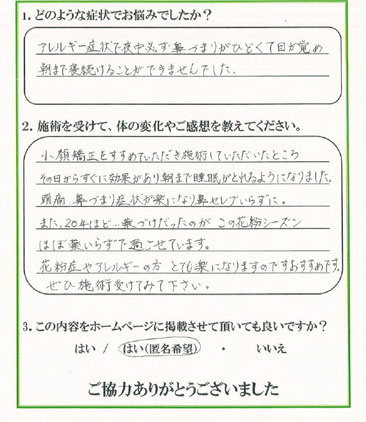 1. どのような症状でお悩みでしたか？
アレルギー症状で夜中必ず鼻づまりがひどくて目が覚め
朝まで寝続けることができませんでした.
2. 施術を受けて、体の変化やご感想を教えてください。
小顔矯正をすすめていただき施術していただいたところ
その日からすぐに効果があり朝まで睡眠がとれるようになりました.
頭痛 鼻づまり症状が楽になり鼻セレブいらずに。
また.20年ほど…薬づけだったのが この花粉シーズン
ほぼ薬いらずで過ごせています。
花粉症やアレルギーの方 とても楽になりますのでおすすめです.
ぜひ施術受けてみて下さい。
3. この内容をホームページに掲載させて頂いても良いですか？
はい / はい(匿名希望) ・ いいえ
ご協力ありがとうございました